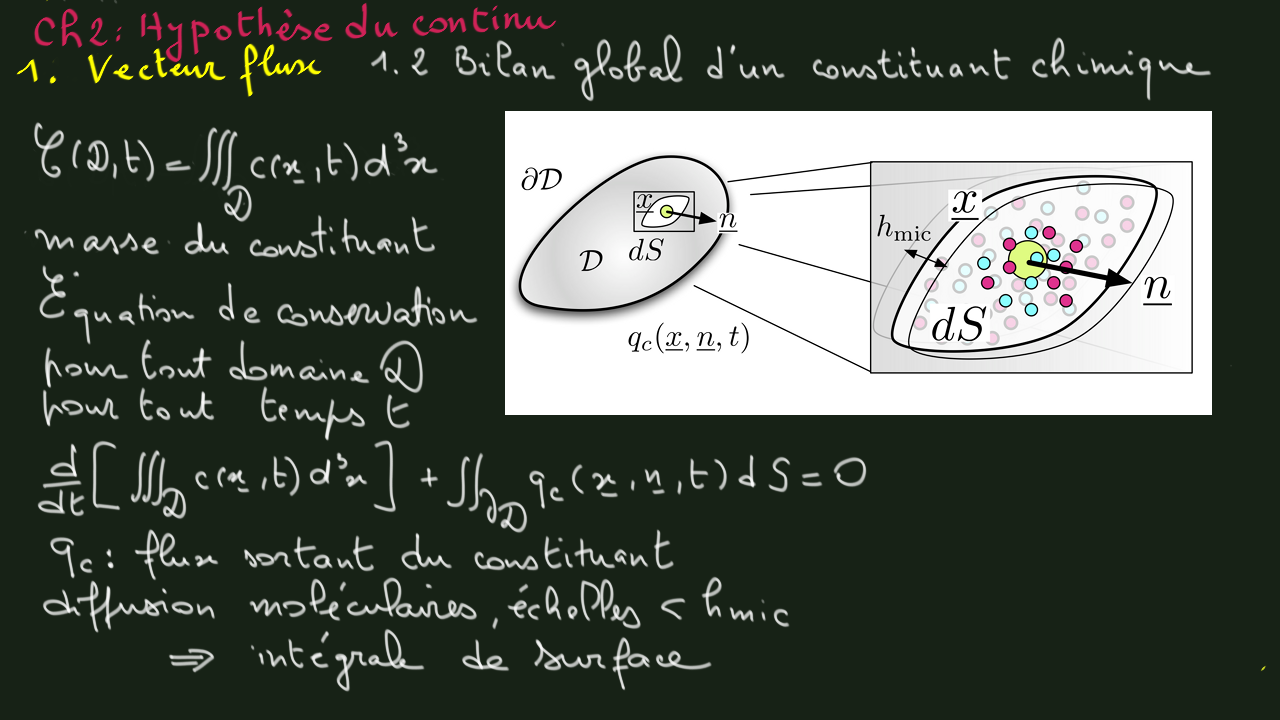 Ch2: Hypothèse du continu
1. Vecteur flux 1.2 Bilan global d'un constituant chimique
𝒞(𝒟,t) = ∭_𝒟 c(x̲,t) d³x
masse du constituant
Équation de conservation
pour tout domaine 𝒟
pour tout temps t
d/dt [∭_𝒟 c(x̲,t) d³x] + ∬_∂𝒟 q_c(x̲,n̲,t) dS = 0
q_c : flux sortant du constituant
diffusion moléculaires, échelles < h_mic
⇒ intégrale de surface
∂𝒟
x̲
n̲
𝒟
dS
q_c(x̲, n̲, t)
x̲
h_mic
n̲
dS